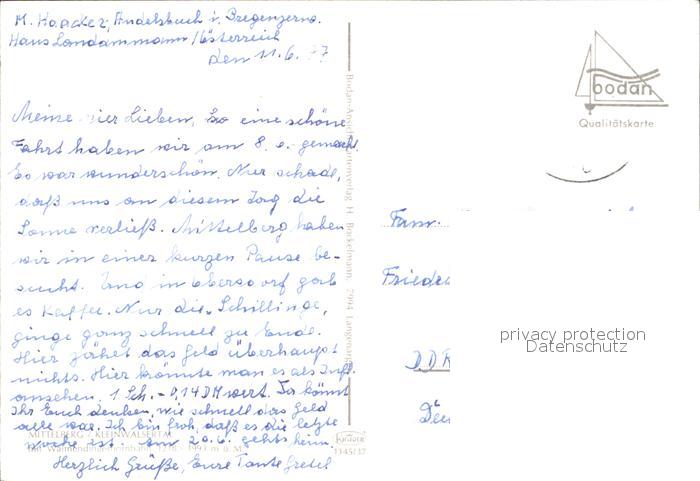 M. Haacker, Andelsbuch i. Bregenzerw.
Haus Landammann / Österreich
den 11.6.77
Meine vier Lieben, So eine schöne
Fahrt haben wir am 8. 6. gemacht.
Es war wunderschön. Nur schade,
daß uns an diesem Tag die
Sonne verließ. Mittelberg haben
wir in einer kurzen Pause be-
sucht. Und in Obersdorf gab
es Kaffee. Nur die Schillinge,
ginge ganz schnell zu Ende.
Hier zählt das Geld überhaupt
nichts. Hier könnte man es als Infl.
ansehen. 1 Sch. - 0,14 DM wert. Da könnt
Ihr Euch denken, wie schnell das Geld
alle war. Ich bin froh, daß es die letzte
Woche ist. Am 20.6. gehts heim.
Herzlich Grüße, Eure Tante Gretel
MITTELBERG / KLEINWALSERTAL
1993 m ü. M.
1145/37
Bodan-Ansichtskartenverlag H. Bockelmann, 7994 Langenargen
bodan
Qualitätskarte
Fam.
Friede
DDR
privacy protection
Datenschutz